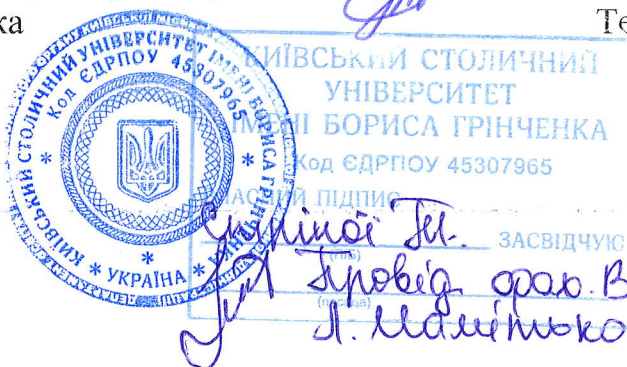 ка
Те
КИЇВСЬКИЙ СТОЛИЧНИЙ УНІВЕРСИТЕТ ІМЕНІ БОРИСА ГРІНЧЕНКА
Код ЄДРПОУ 45307965
* УКРАЇНА *
КИЇВСЬКИЙ СТОЛИЧНИЙ
УНІВЕРСИТЕТ
ІМЕНІ БОРИСА ГРІНЧЕНКА
Код ЄДРПОУ 45307965
ПІДПИС
ЗАСВІДЧУЮ
Провід. фах. В
(посада)
Л.